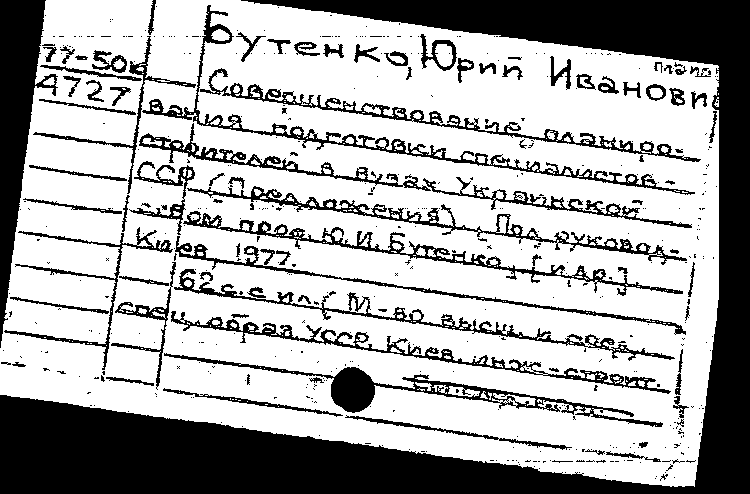 планир
Бутенко, Юрий Иванович
77-50к
4727
Совершенствование планиро-
вания подготовки специалистов -
строителей в вузах Украинской
ССР (Предложения). Под руковод-
ством проф. Ю.И. Бутенко, [и др.].
Киев, 1977.
62 с. с ил. (М-во высш. и сред.
спец. образ. УССР. Киев. инж-строит.
См. след. карт.